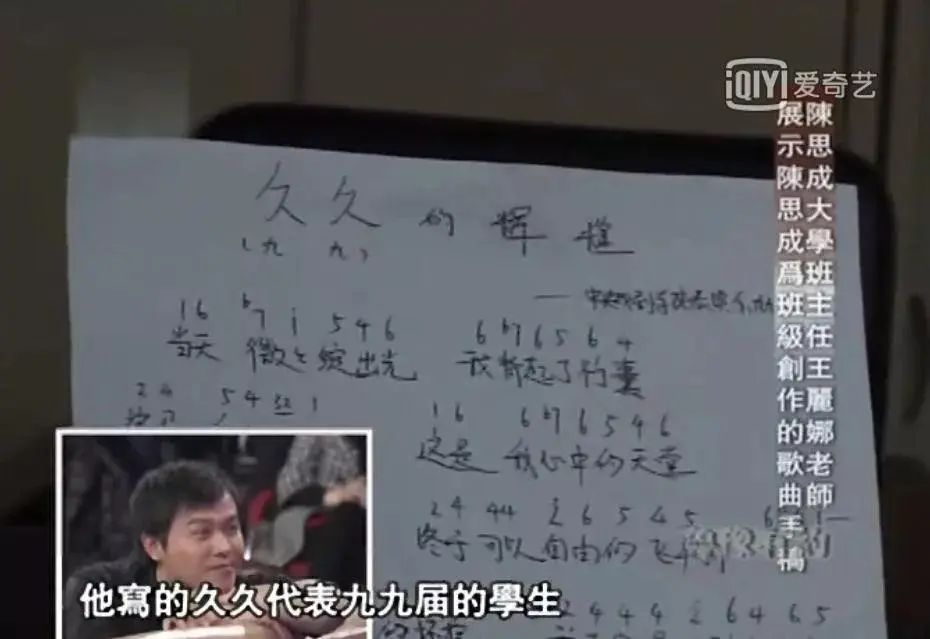 iQIYI 爱奇艺
陳思成大學班主任王麗娜老師
展示陳思成爲班級創作的歌曲手稿
久久的辉煌
(九 九)
1 6 b7 i 5 4 6 6 b7 6 5 6 4
当天 微微绽出光 我背起了行囊
2 4 5 4 1
1 6 6 b7 6 5 4 6
这是 我心中的天堂
2 4 4 4 2 6 5 4 5
终于可以自由的飞
他寫的久久代表九九届的學生
2 4 4 4 2 6 4 6 5